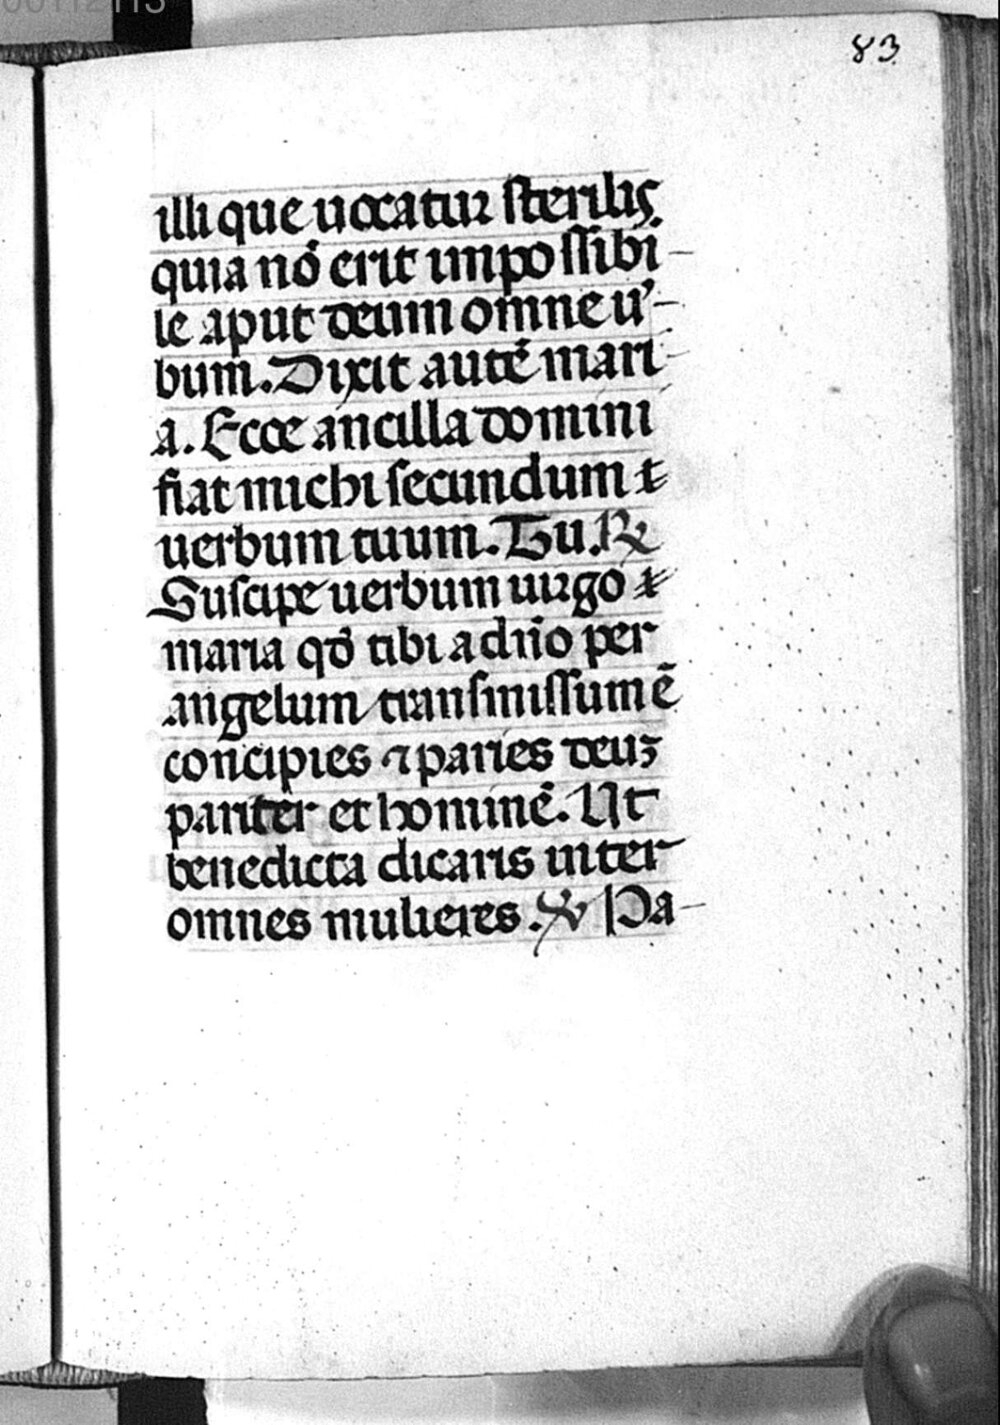 00112113
83
illi que uocatur sterilis.
quia nō erit impossibi-
le aput deum omne u'-
bum. Dixit autē mari-
a. Ecce ancilla domini
fiat michi secundum
uerbum tuum. Tu. ℟
Suscipe uerbum uirgo
maria qđ tibi a dño per
angelum transmissum ē
concipies ⁊ paries deuꝫ
pariter et hominē. Ut
benedicta dicaris inter
omnes mulieres. ℣ Pa-